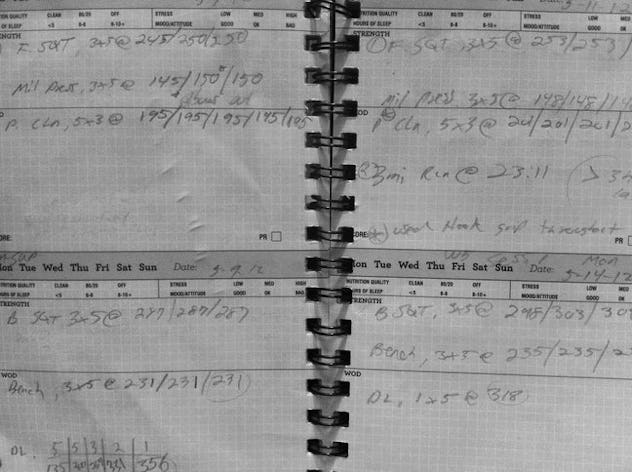 NUTRITION QUALITY CLEAN 80/20 OFF STRESS LOW MED HIGH
HOURS OF SLEEP <5 6-8 8-10+ MOOD/ATTITUDE GOOD OK BAD
STRENGTH
F. SQT, 3x5 @ 245/250/250
Mil Press, 3x5 @ 145/150/150
P. Cln, 5x3 @ 195/195/195/195/195
SCORE: PR
Mon Tue Wed Thu Fri Sat Sun Date: 5.9.12
NUTRITION QUALITY CLEAN 80/20 OFF STRESS LOW MED HIGH
HOURS OF SLEEP <5 6-8 8-10+ MOOD/ATTITUDE GOOD OK BAD
STRENGTH
B SQT 3x5 @ 287/287/287
WOD
Bench, 3x5 @ 231/231/231
DL. 5 5 3 2 1
135 356
5-11-12
NUTRITION QUALITY CLEAN 80/20 OFF STRESS LOW MED
HOURS OF SLEEP <5 6-8 8-10+ MOOD/ATTITUDE GOOD OK
STRENGTH
① F. SQT, 3x5 @ 253/253/
Mil Press 3x5 @ 148/148/14
WOD
P Cln, 5x3 @ 201/201/201/2
3 mi Run @ 23:11
SCORE: used Hook grip throughout PR
Mon Tue Wed Thu Fri Sat Sun Date: Mon 5-14-12
NUTRITION QUALITY CLEAN 80/20 OFF STRESS LOW MED
HOURS OF SLEEP <5 6-8 8-10+ MOOD/ATTITUDE GOOD OK
STRENGTH
B SQT, 3x5 @ 298/303/303
Bench, 3x5 @ 235/235/23
WOD
DL, 1x5 @ 318